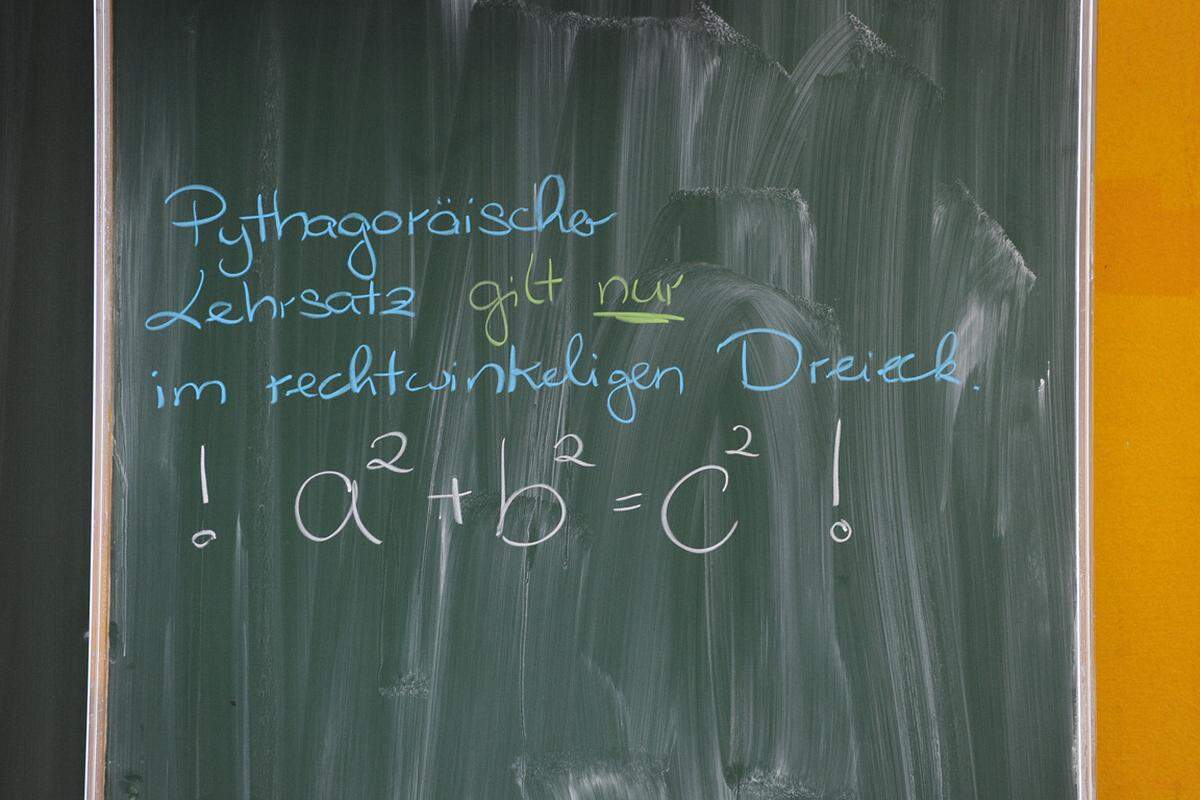 Pythagoräischer
Lehrsatz gilt nur
im rechtwinkeligen Dreieck.
! a² + b² = c² !